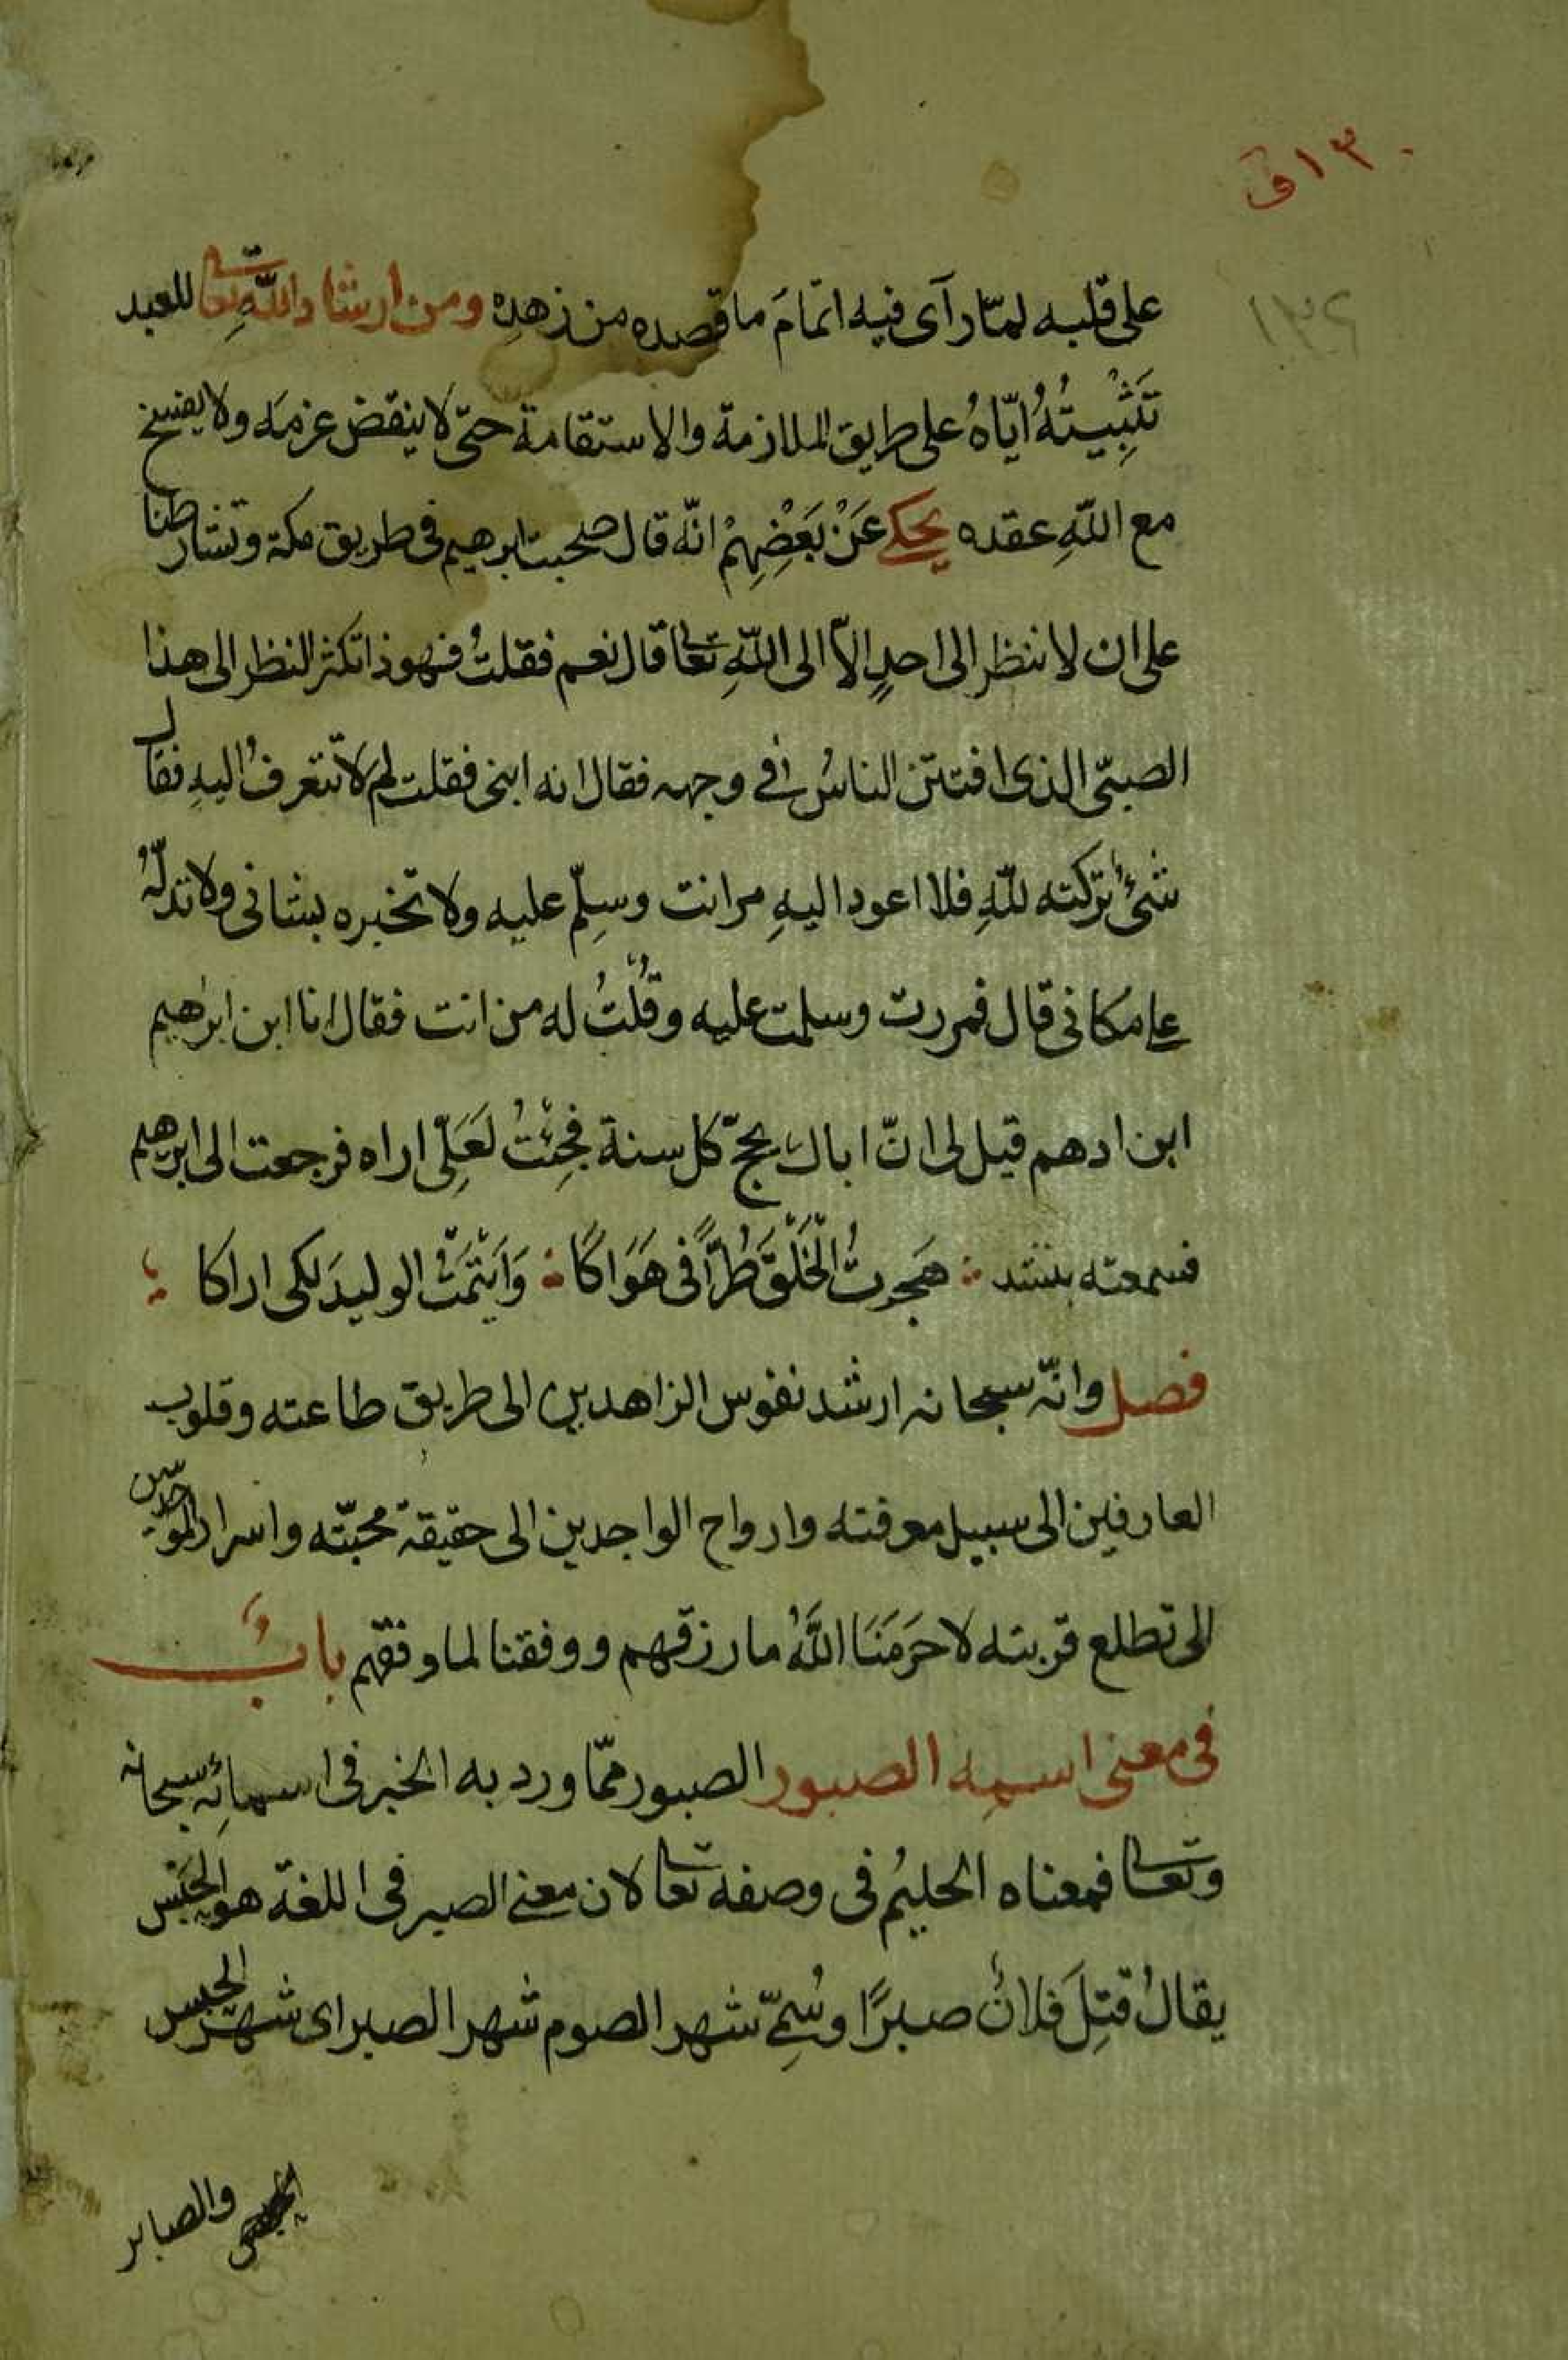 ١٣٠ ق
١٣٤
على قلبه لمّا رآى فيه اتمامَ ما قصده من زهدِه ومن ارشاد اللّهِ تعالى للعبد
تَثْبِيتُهُ ايّاهُ على طريق الملازمة والاستقامة حتّى لا ينقض عزمَه ولا يفسخ
مع اللّهِ عقده يحكى عَنْ بَعْضِهِمْ انّه قال صحبت ابرهيم فى طريق مكة وتشارطنا
على ان لا ننظر الى احدٍ الاّ الى اللّهِ تعالى قال نعم فقلتُ فهوذا تكثر النظر الى هذا
الصبىّ الذى افتتن الناسُ فى وجهه فقال انه ابنى فقلت لِمَ لا تتعرف اليهِ فقال
شئ تركته للّهِ فلا اعود اليهِ مر انت وسلِّم عليه ولا تخبره بشانى ولا تدلّهُ
على مكانى قال فمررت وسلمت عليه وقُلْتُ له من انت فقال انا ابن ابرهيم
ابن ادهم قيل لى انّ اباك يحجّ كل سنة فجِئْتُ لَعَلِّى اراه فرجعت الى ابرهيم
فسمعته ينشد : هَجرتُ الْخَلْقَ طُرًّا فى هَوَاكَا : وَاَيْتَمْتُ الوليدَ لكى اراكا :
فصل وانّه سبحانه ارشد نفوس الزاهدين الى طريق طاعته وقلوب
العارفين الى سبيل معرفته وارواح الواجدين الى حقيقة محبّته واسرار الموحّدين
الى تطلع قربته لا حَرَمَنَا اللَّهُ ما رزقهم ووفقنا لما وفقهم بابٌ
فى معنى اسمِه الصبور الصبور ممّا ورد به الخبر فى اسمائِه سبحانه
وتعالى فمعناه الحليمُ فى وصفه تعالى لان معنى الصبر فى اللغة هو الحَبْس
يقالُ قتِلَ فلانٌ صبرًا وسُمِّىَ شهر الصوم شهر الصبر اى شهر الحبس
والصابر